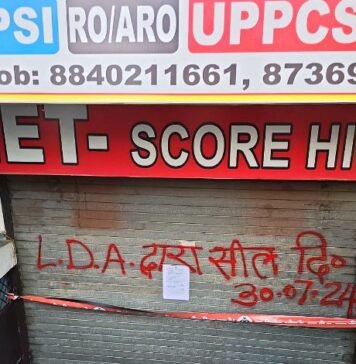 PSI RO/ARO UPPCS
ob: 8840211661, 8736
ET- SCORE HI
L.D.A. द्वारा सील दि०
30.07.24